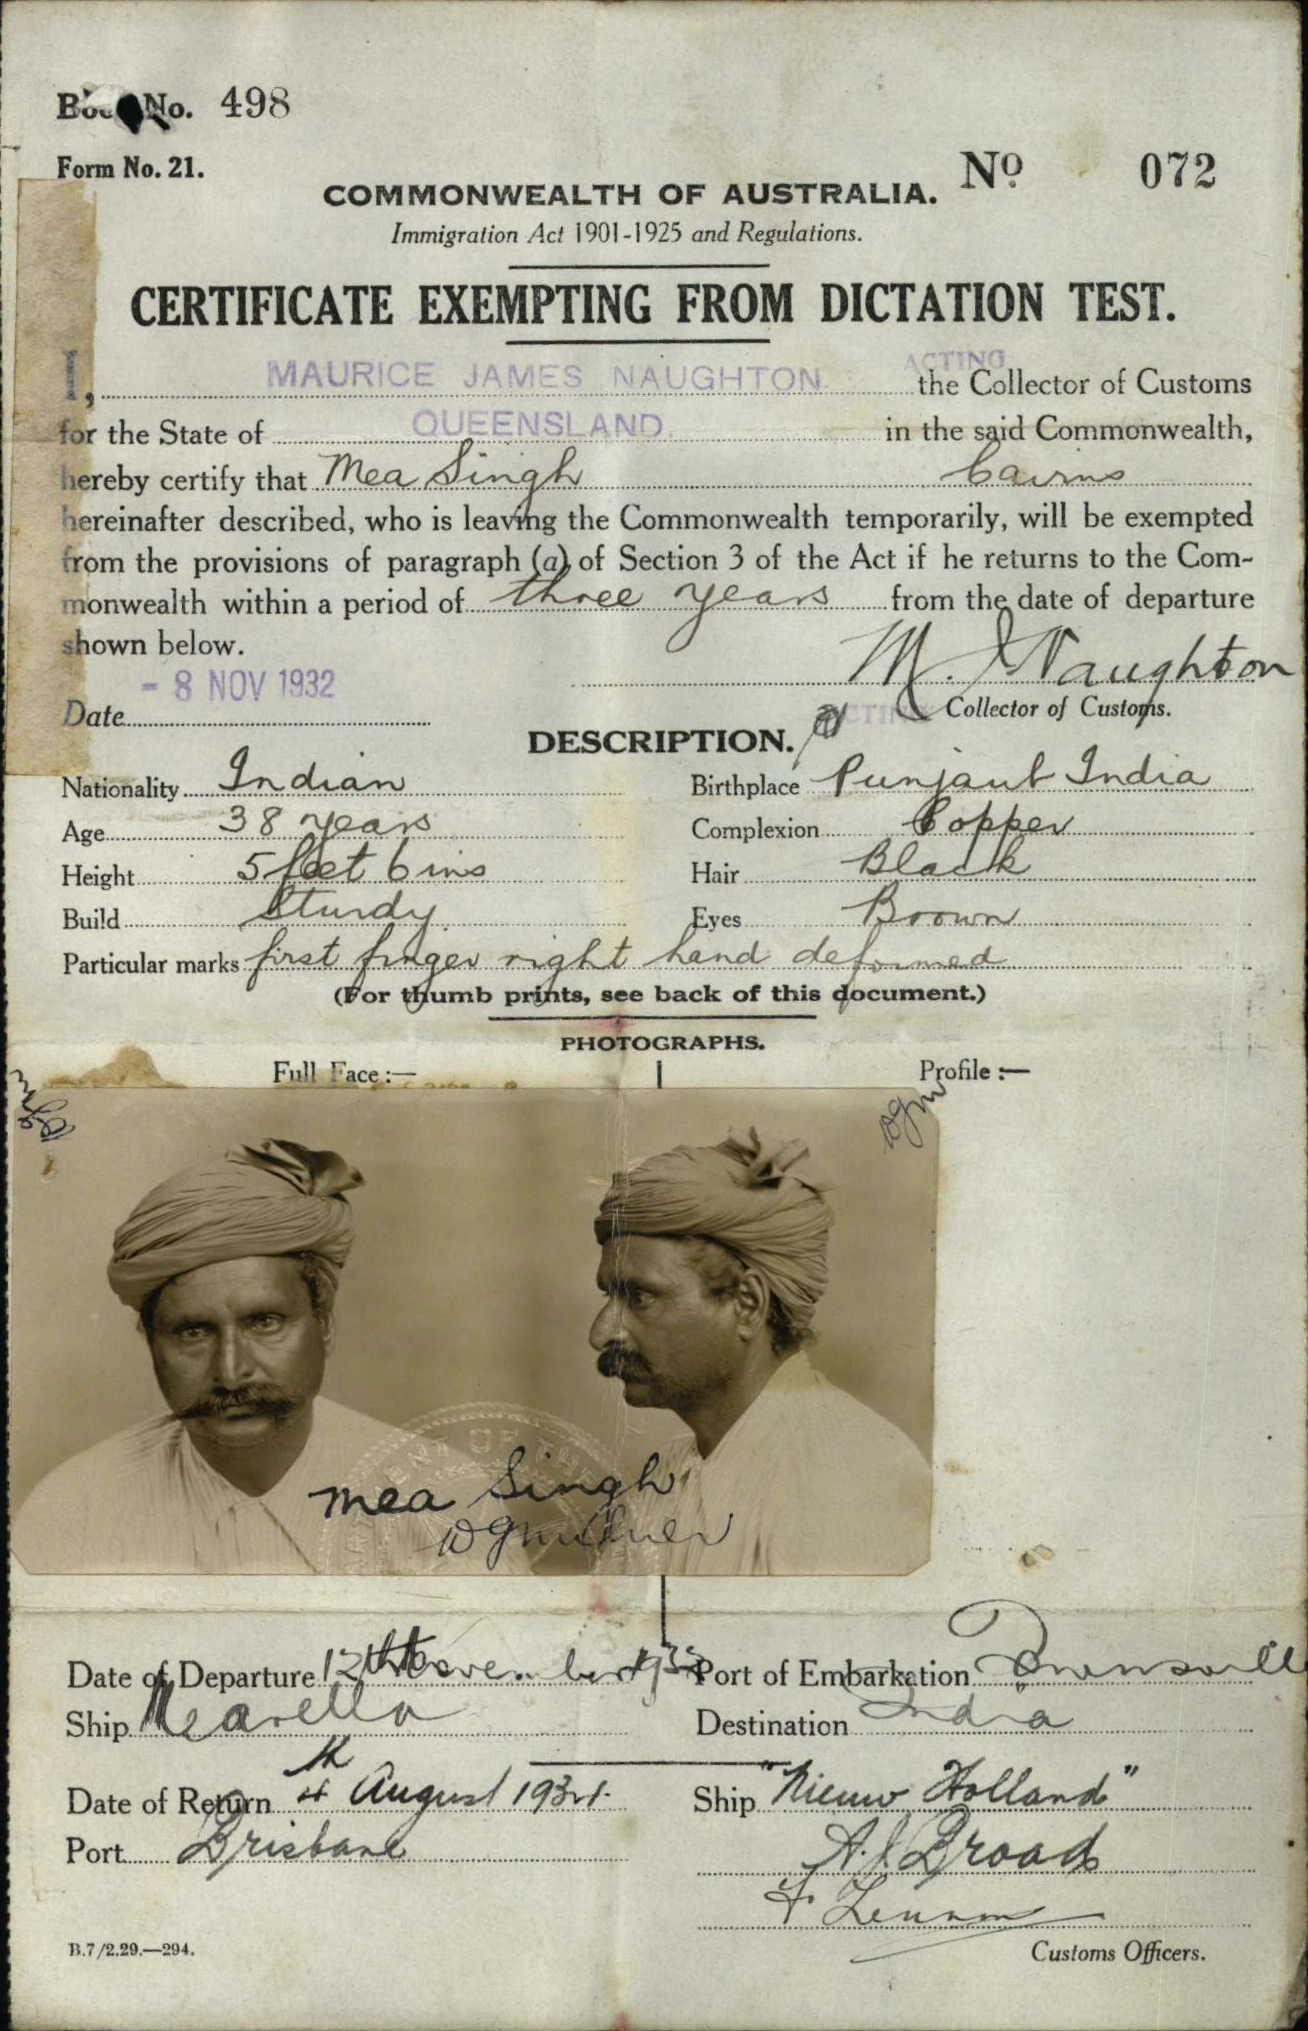 Book No. 498
Form No. 21.
No. 072
COMMONWEALTH OF AUSTRALIA.
Immigration Act 1901-1925 and Regulations.
CERTIFICATE EXEMPTING FROM DICTATION TEST.
I, MAURICE JAMES NAUGHTON ACTING the Collector of Customs
for the State of QUEENSLAND. in the said Commonwealth,
hereby certify that Mea Singh Cairns
hereinafter described, who is leaving the Commonwealth temporarily, will be exempted
from the provisions of paragraph (a) of Section 3 of the Act if he returns to the Com-
monwealth within a period of three years from the date of departure
shown below.
M. J. Naughton
- 8 NOV 1932
Date
ACTING Collector of Customs.
DESCRIPTION.
Nationality Indian Birthplace Punjaub India
Age 38 years Complexion Copper
Height 5 feet 6 ins Hair Black
Build Sturdy Eyes Brown
Particular marks first finger right hand deformed
(For thumb prints, see back of this document.)
PHOTOGRAPHS.
Full Face :— Profile :—
Mea Singh
Date of Departure 12th November 1932 Port of Embarkation Townsville
Ship Mearella Destination India
Date of Return 4th August 1934. Ship "Nieuw Holland"
Port Brisbane A. J. Broad
F. Lennon
B.7/2.29.—294. Customs Officers.